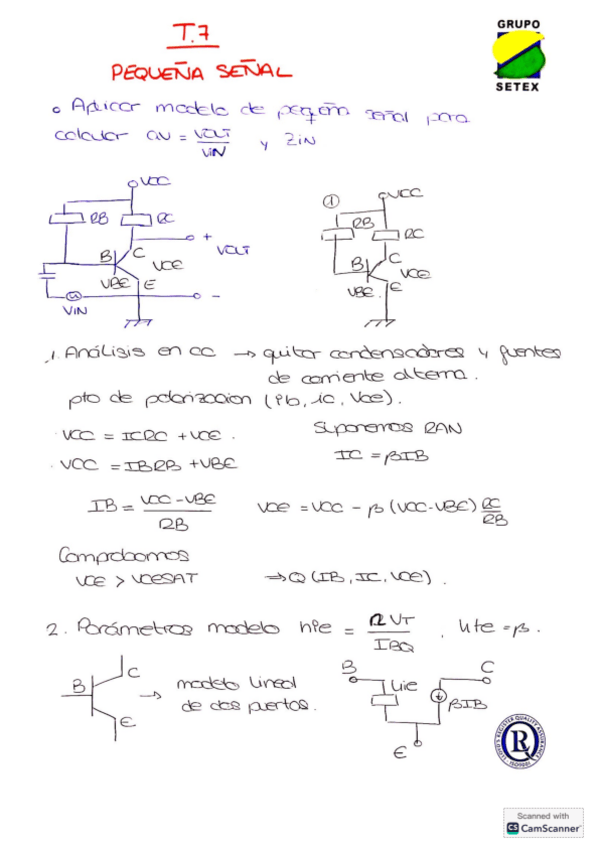 T.7
PEQUEÑA SEÑAL
GRUPO
SETEX
o Aplicar modelo de pequeña señal para
calcular av = VOUT/VIN y ZIN
VCC
RB RC
+
VOUT
B C
VCE
VBE E
-
VIN
①
VCC
RB
RC
B C
VCE
VBE E
1. Análisis en CC → quitar condensadores y fuentes
de corriente alterna.
pto de polarizacion (ib, ic, Vce).
· VCC = ICRC + VCE.
Suponemos RAN
· VCC = IBRB + VBE
IC = βIB
IB = VCC - VBE / RB
VCE = VCC - β (VCC-VBE) RC/RB
Comprobamos
VCE > VCESAT ⇒ Q (IB, IC, VCE).
2. Parámetros modelo hie = ηVT / IBQ , hfe = β.
B C
E
→ modelo lineal
de dos puertos.
B C
hie
βIB
E
LLOYD'S REGISTER QUALITY ASSURANCE
ISO9001
Scanned with
CS CamScanner